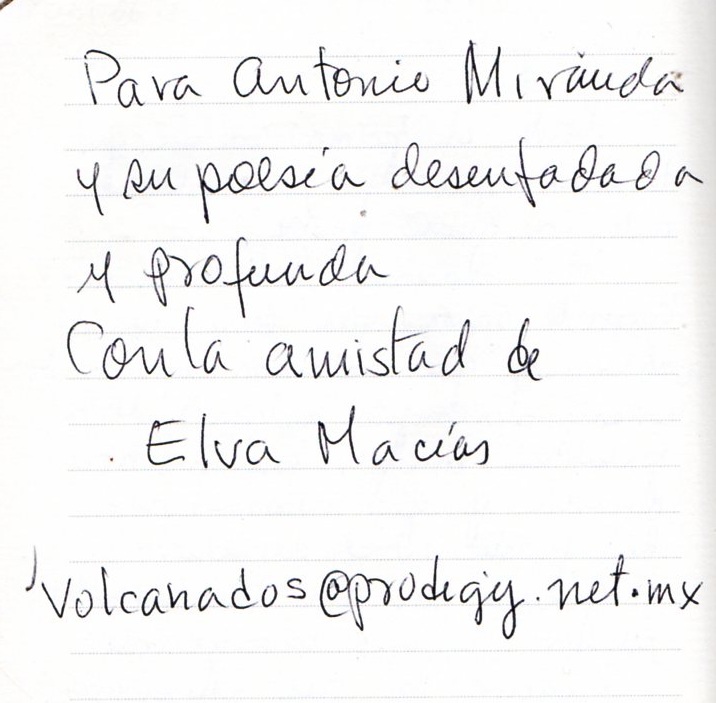 Para Antonio Miranda
y su poesía desenfadada
y profunda
Con la amistad de
Elva Macías
volcanados@prodigy.net.mx